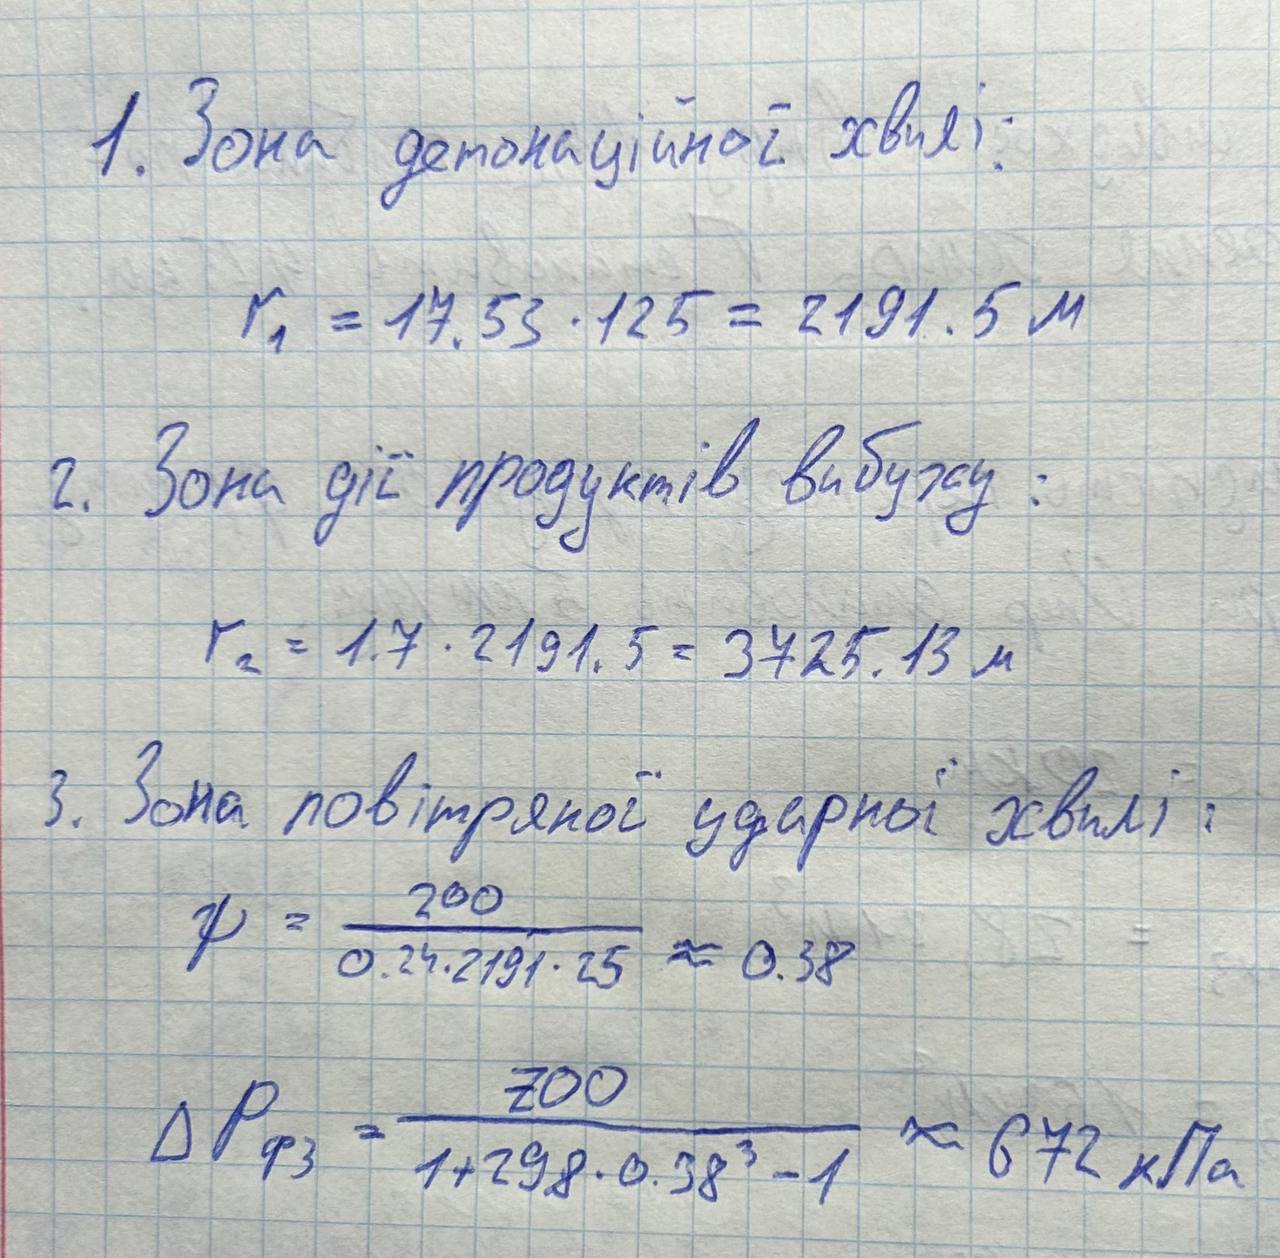 1. Зона детонаційної хвилі:
r₁ = 17.53 · 125 = 2191.5 м
2. Зона дії продуктів вибуху:
r₂ = 1.7 · 2191.5 = 3725.13 м
3. Зона повітряної ударної хвилі:
ψ = 200 / 0.24 · 2191 · 25 ≈ 0.38
ΔP_фз = 700 / 1+298 · 0.38³ - 1 ≈ 672 кПа